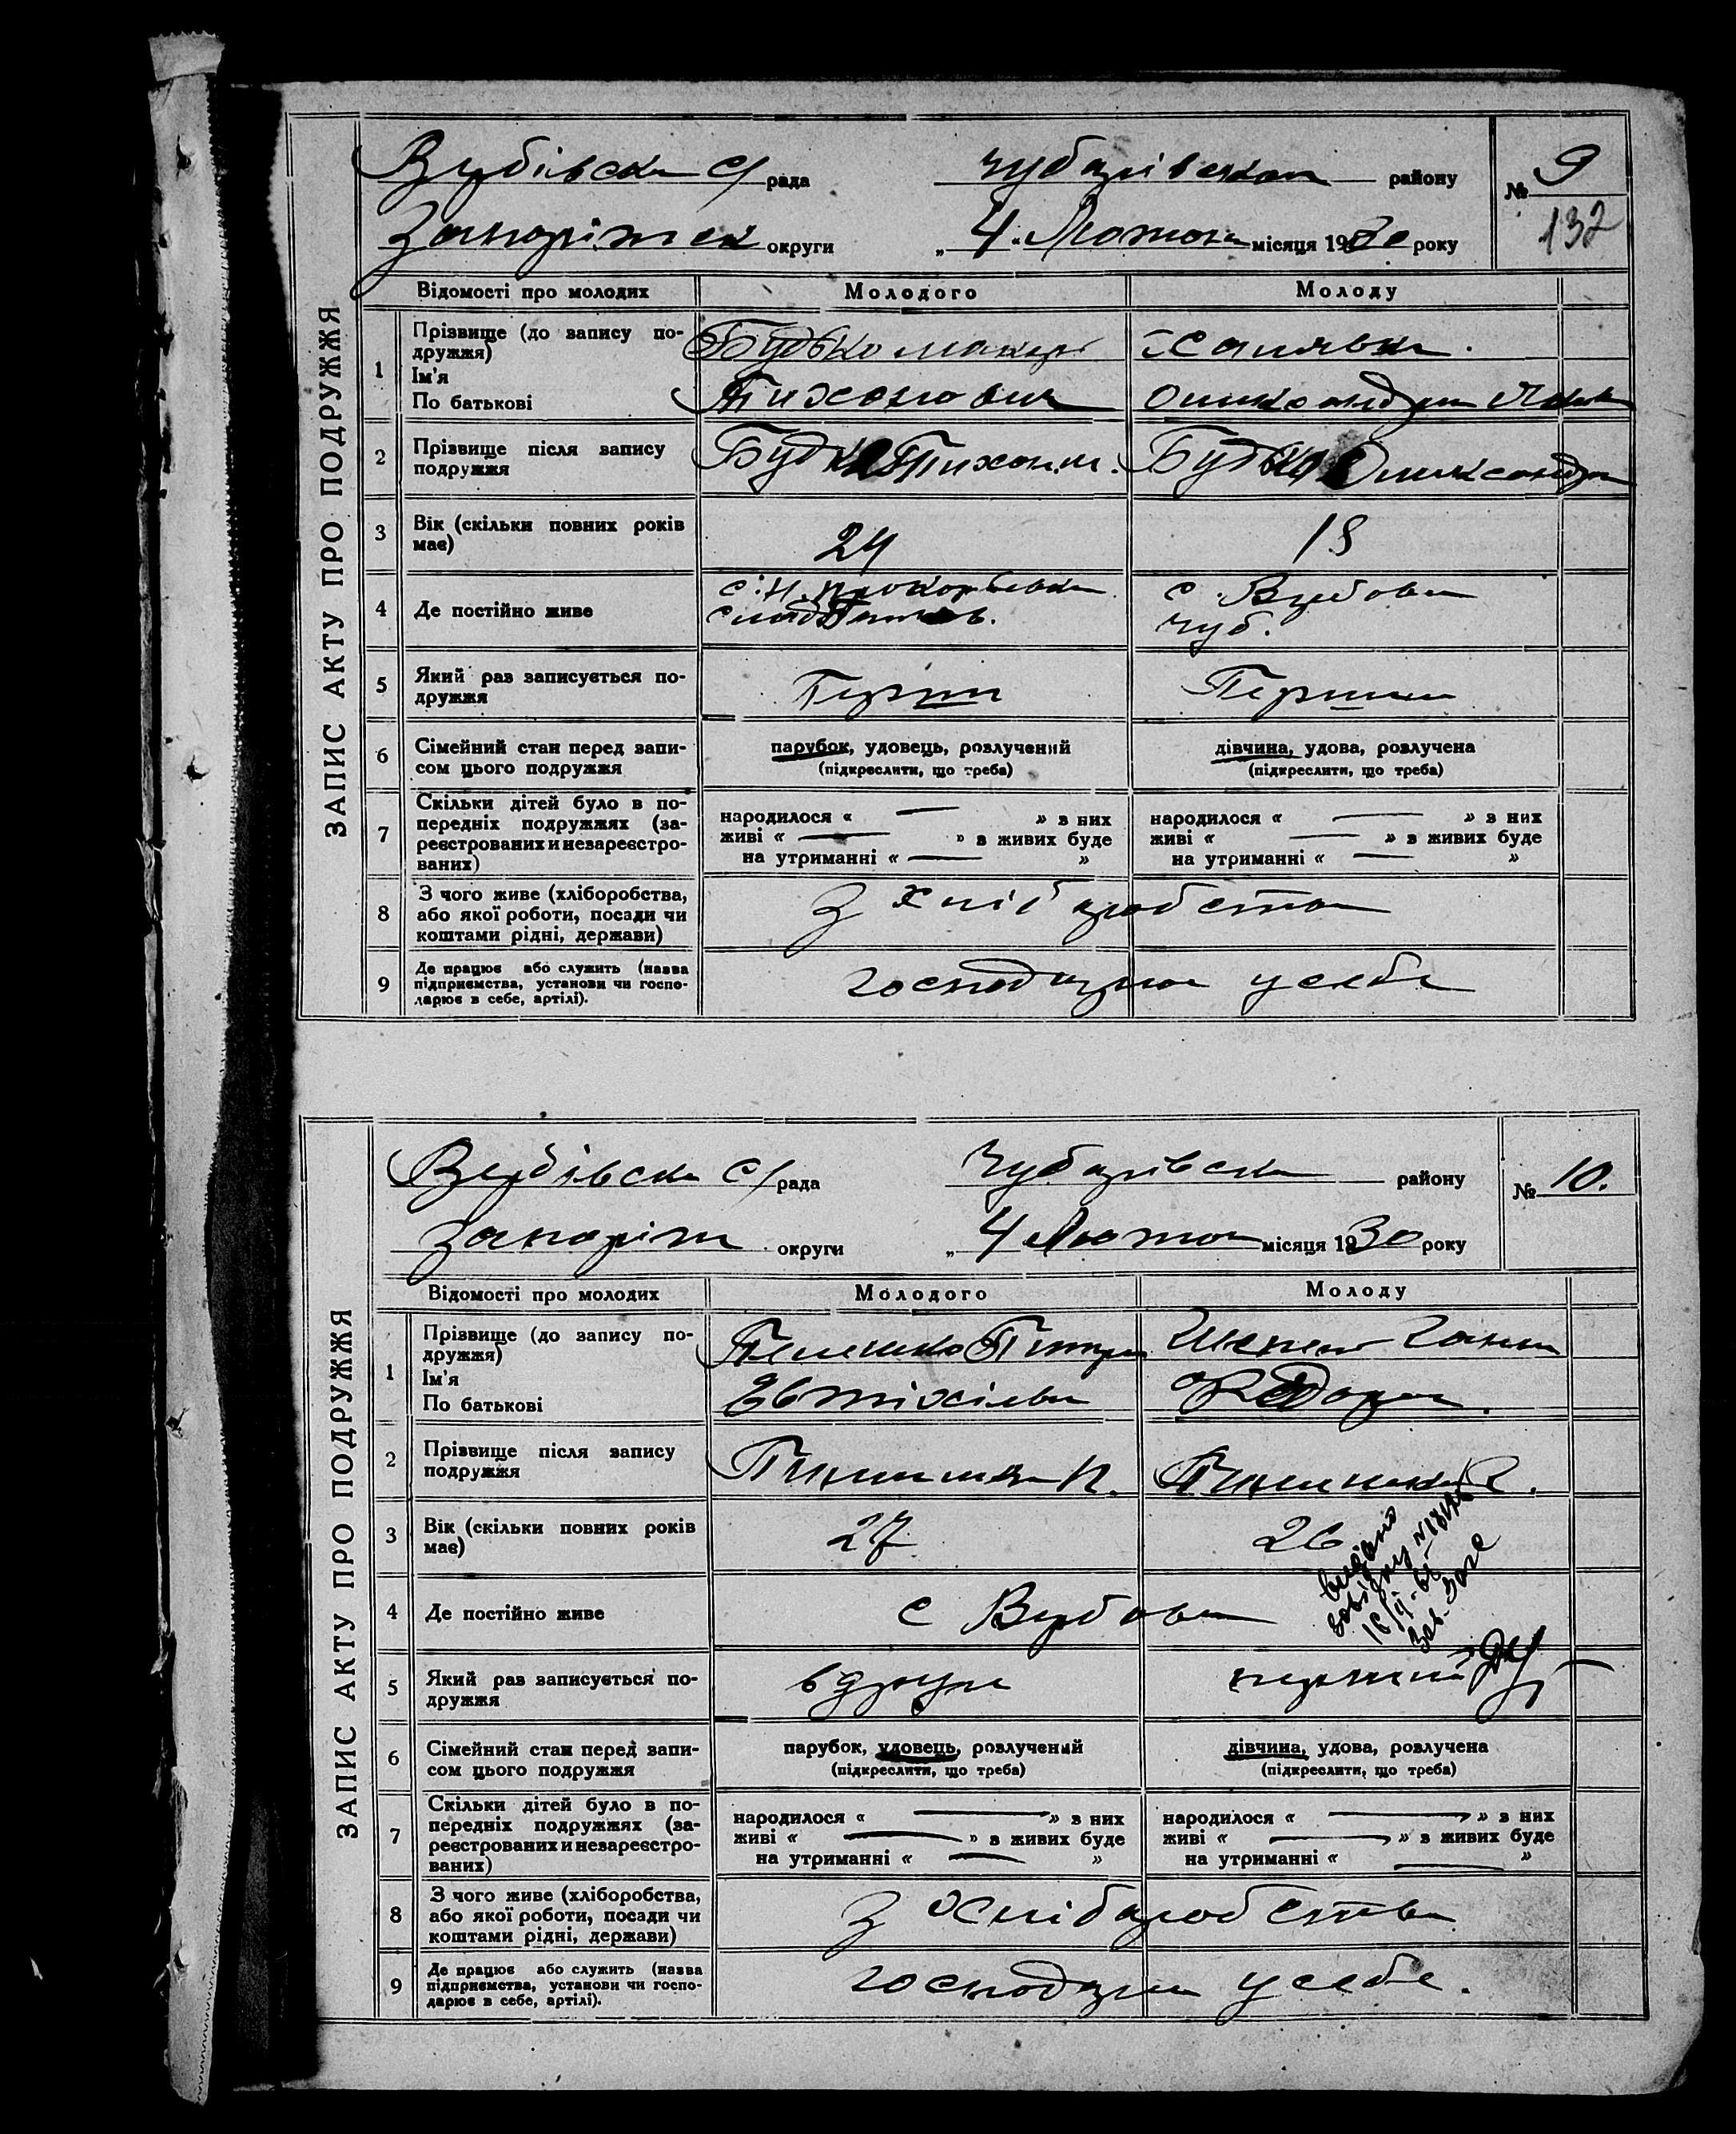 ЗАПИС АКТУ ПРО ПОДРУЖЖЯ
Вербівська с/рада Чубарівськ району № 9
Запоріжск округи „ 4 " Лютого місяця 1930 року 132
Відомості про молодих Молодого Молоду
1 Прізвище (до запису подружжя) Будько Макар
Ім'я
По батькові Тихонович Олександра
2 Прізвище після запису подружжя Будько Будько Олександра
3 Вік (скільки повних років має) 24 18
4 Де постійно живе с. Н. с Вербова
Чуб.
5 Який раз записується подружжя Перший Перший
6 Сімейний стан перед записом цього подружжя парубок, удовець, розлучений дівчина, удова, розлучена
(підкреслити, що треба) (підкреслити, що треба)
7 Скільки дітей було в попередніх подружжях (зареєстрованих и незареєстрованих) народилося « — » з них народилося « — » з них
живі « — » з живих буде живі « — » з живих буде
на утриманні « — » на утриманні « — »
8 З чого живе (хліборобства, або якої роботи, посади чи коштами рідні, держави) З хліборобства
9 Де працює або служить (назва підприємства, установи чи господарює в себе, артілі). господарює у себе
ЗАПИС АКТУ ПРО ПОДРУЖЖЯ
Вербівська с/рада Чубарівськ району № 10.
Запоріж округи „ 4 Лютого місяця 1930 року
Відомості про молодих Молодого Молоду
1 Прізвище (до запису подружжя) Петро Ганна
Ім'я
По батькові Федор.
2 Прізвище після запису подружжя
3 Вік (скільки повних років має) 27 26
4 Де постійно живе с Вербова
видано
5 Який раз записується подружжя вдруге перший
6 Сімейний стан перед записом цього подружжя парубок, удовець, розлучений дівчина, удова, розлучена
(підкреслити, що треба) (підкреслити, що треба)
7 Скільки дітей було в попередніх подружжях (зареєстрованих и незареєстрованих) народилося « — » з них народилося « — » з них
живі « — » з живих буде живі « — » з живих буде
на утриманні « — » на утриманні « — »
8 З чого живе (хліборобства, або якої роботи, посади чи коштами рідні, держави) З хліборобства
9 Де працює або служить (назва підприємства, установи чи господарює в себе, артілі). господарює у себе.